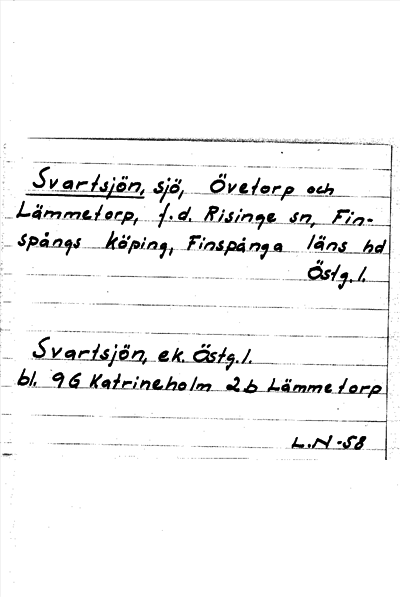 Svartsjön, sjö, Övetorp och
Lämmetorp, f.d. Risinge sn, Fin-
spångs köping, Finspånga läns hd
Östg.l.
Svartsjön, ek. Östg.l.
bl. 9G Katrineholm 2b Lämmetorp
L.N -58